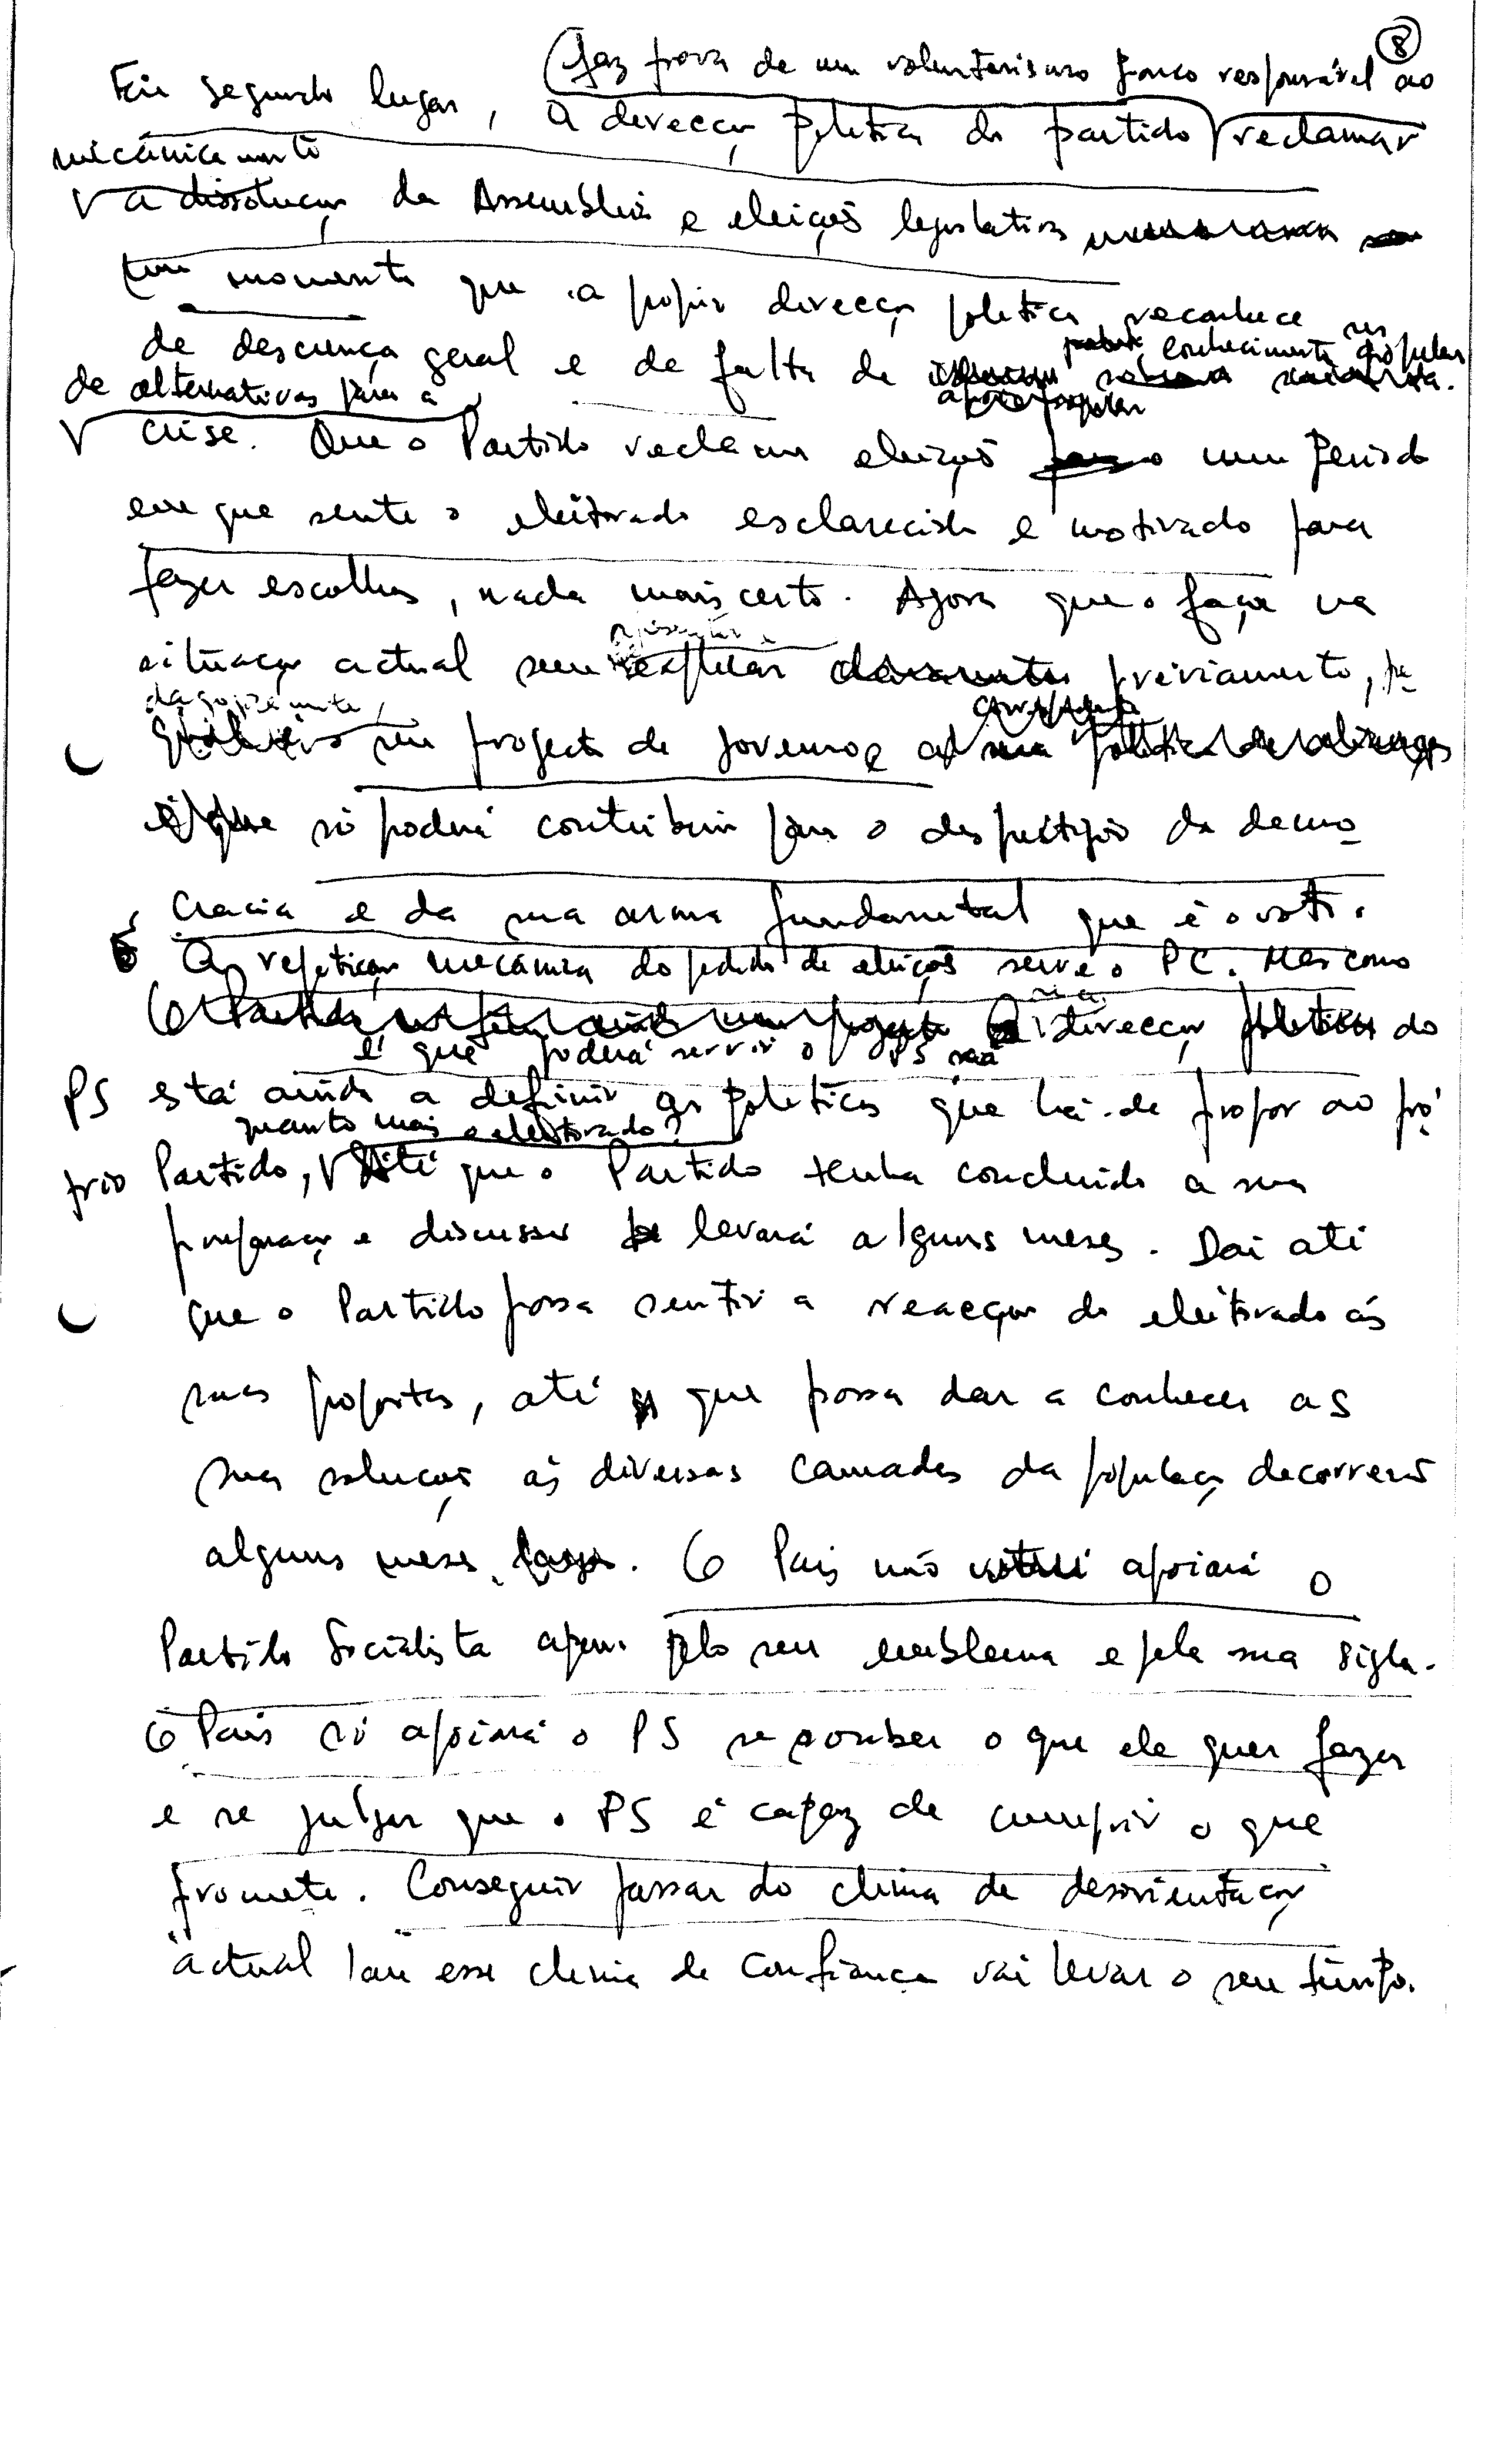 8
(faz prova de um voluntarismo pouco responsável ao
Em segundo lugar, a direcção política do partido reclamar
mecânicamente
a dissolução da Assembleia e eleições legislativas
num momento que a própria direcção política reconhece ser
conhecimento popular
de descrença geral e de falta de
de alternativas para a
crise. Que o Partido reclame eleições num período
em que sente o eleitorado esclarecido e motivado para
fazer escolhas, nada mais certo. Agora que o faça na
apresentar e
situação actual sem explicar previamente, pe
dagogicamente,
seu projecto de governo e
só poderá contribuir para o desprestígio da demo
cracia e da sua arma fundamental que é o voto.
A repetição mecânica do pedido de eleições serve o PC. Mas como
direcção do
é que poderá servir o PS
PS está ainda a definir as políticas que há-de propor ao pró
quanto mais o eleitorado?
prio Partido, Até que o Partido tenha concluído a sua
preparação e discussão levará alguns meses. Daí até
que o Partido possa sentir a reacção do eleitorado às
suas propostas, até que possa dar a conhecer as
suas soluções às diversas camadas da população decorrerão
alguns meses. O País não apoiará o
Partido Socialista apenas pelo seu emblema e pela sua sigla.
O País só apoiará o PS se souber o que ele quer fazer
e se julgar que o PS é capaz de cumprir o que
promete. Conseguir passar do clima de desorientação
actual para esse clima de confiança vai levar o seu tempo.